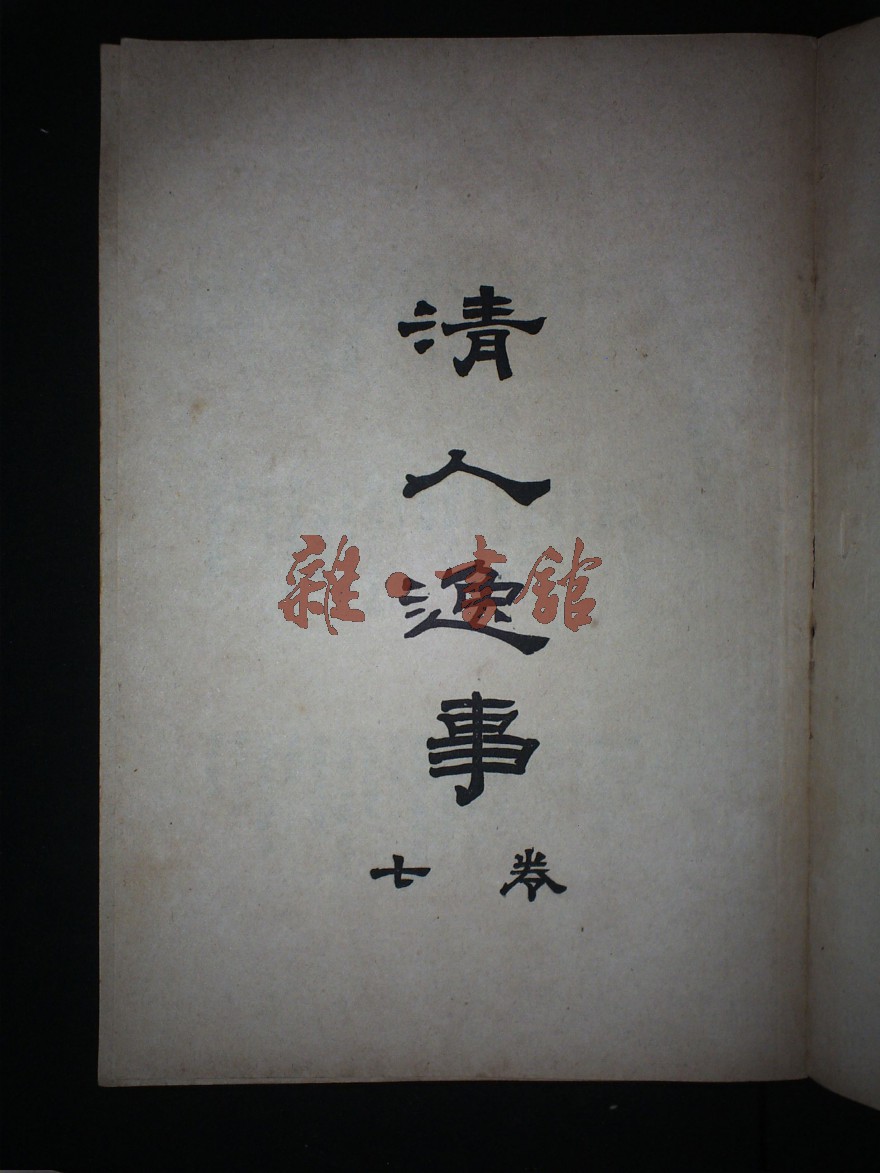 清人逸事
卷七
雜·書館